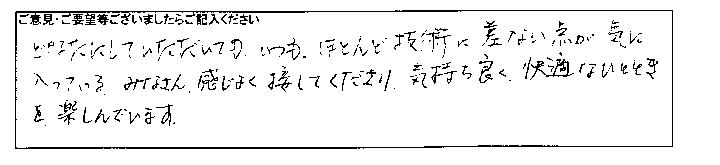 ご意見・ご要望等ございましたらご記入ください
どなたにしていただいても、いつも、ほとんど技術に差ない点が気に
入っている。みなさん、感じよく接してくださり、気持ち良く、快適なひととき
を楽しんでいます。